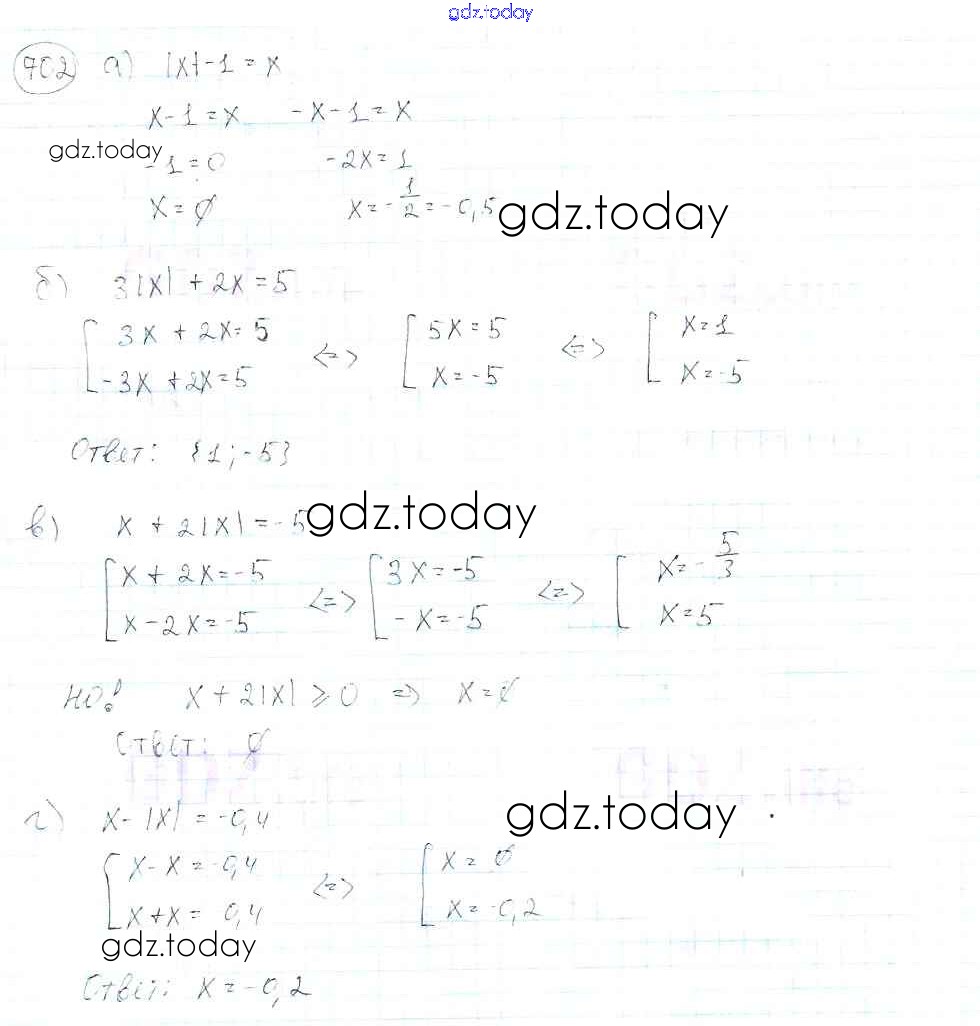 gdz.today
702 а) |x|-1=x
x-1=x -x-1=x
gdz.today
-1=0 -2x=1
x=∅ x=-1/2=-0,5 gdz.today
б) 3|x|+2x=5
[ 3x+2x=5 <=> [ 5x=5 <=> [ x=1
-3x+2x=5 x=-5 x=-5
Ответ: {1;-5}
в) x+2|x|=-5 gdz.today
[ x+2x=-5 <=> [ 3x=-5 <=> [ x=-5/3
x-2x=-5 -x=-5 x=5
НО! x+2|x|⩾0 => x=∅
Ответ: ∅
г) x-|x|=-0,4 gdz.today
[ x-x=-0,4 <=> [ x=∅
x+x= 0,4 x=-0,2
gdz.today
Ответ: x=-0,2